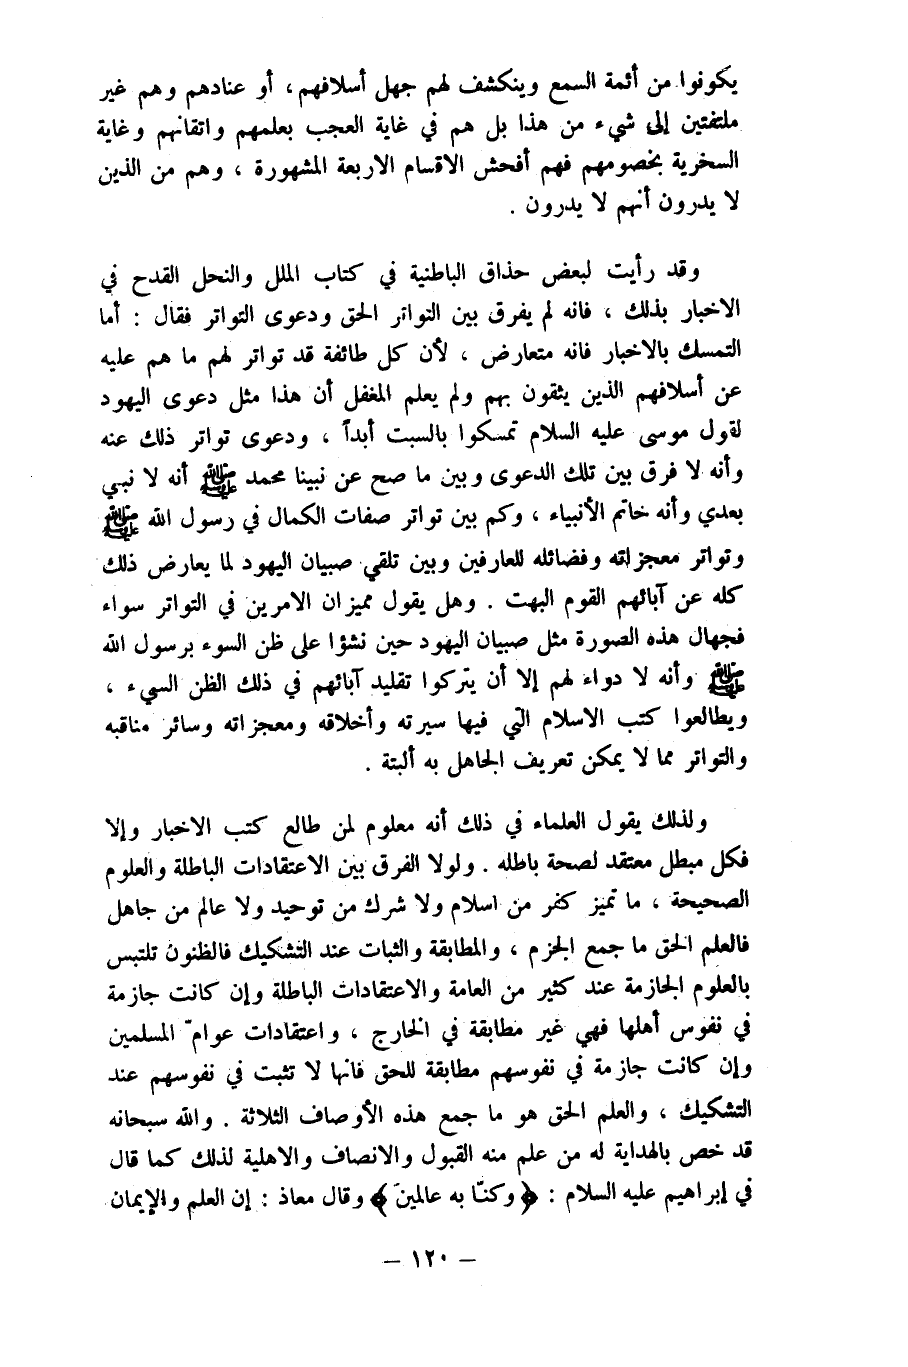 يكونوا من أئمة السمع وينكشف لهم جهل أسلافهم، أو عنادهم وهم غير
ملتفتين إلى شيء من هذا بل هم في غاية العجب بعلمهم واتقانهم وغاية
السخرية بخصومهم فهم أفحش الاقسام الاربعة المشهورة ، وهم من الذين
لا يدرون أنهم لا يدرون .
وقد رأيت لبعض حذاق الباطنية في كتاب الملل والنحل القدح في
الاخبار بذلك ، فانه لم يفرق بين التواتر الحق ودعوى التواتر فقال : أما
التمسك بالاخبار فانه متعارض ، لأن كل طائفة قد تواتر لهم ما هم عليه
عن أسلافهم الذين يثقون بهم ولم يعلم المغفل أن هذا مثل دعوى اليهود
لقول موسى عليه السلام تمسكوا بالسبت أبداً ، ودعوى تواتر ذلك عنه
وأنه لا فرق بين تلك الدعوى وبين ما صح عن نبينا محمد ﷺ أنه لا نبي
بعدي وأنه خاتم الأنبياء ، وكم بين تواتر صفات الكمال في رسول الله ﷺ
وتواتر معجزاته وفضائله للعارفين وبين تلقي صبيان اليهود لما يعارض ذلك
كله عن آبائهم القوم البهت . وهل يقول مميزان الامرين في التواتر سواء
فجهال هذه الصورة مثل صبيان اليهود حين نشؤا على ظن السوء برسول الله
ﷺ وأنه لا دواء لهم إلا أن يتركوا تقليد آبائهم في ذلك الظن السيء ،
ويطالعوا كتب الاسلام التي فيها سيرته وأخلاقه ومعجزاته وسائر مناقبه
والتواتر مما لا يمكن تعريف الجاهل به ألبتة .
ولذلك يقول العلماء في ذلك أنه معلوم لمن طالع كتب الاخبار وإلا
فكل مبطل معتقد لصحة باطله . ولولا الفرق بين الاعتقادات الباطلة والعلوم
الصحيحة ، ما تميز كفر من اسلام ولا شرك من توحيد ولا عالم من جاهل
فالعلم الحق ما جمع الجزم ، والمطابقة والثبات عند التشكيك فالظنون تلتبس
بالعلوم الجازمة عند كثير من العامة والاعتقادات الباطلة وإن كانت جازمة
في نفوس أهلها فهي غير مطابقة في الخارج ، واعتقادات عوامّ المسلمين
وإن كانت جازمة في نفوسهم مطابقة للحق فانها لا تثبت في نفوسهم عند
التشكيك ، والعلم الحق هو ما جمع هذه الأوصاف الثلاثة . والله سبحانه
قد خص بالهداية له من علم منه القبول والانصاف والاهلية لذلك كما قال
في إبراهيم عليه السلام : ﴿ وكنّا به عالمينَ ﴾ وقال معاذ : إن العلم والإيمان
– ١٢٠ –